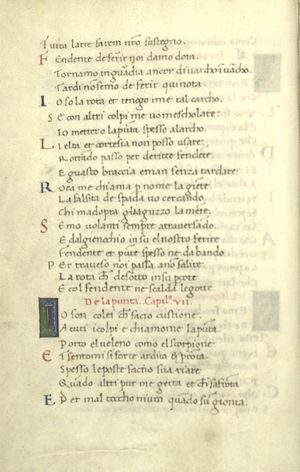 Tuita larte farem nrõ sustegno.
Fendente de ferir noi damo dota.
Tornamo in guãdia ancor di varcho i uãcho.
Tardi nõ semo de ferir qui nota
Io so la rota et tengo me tal carcho.
Se con altri colpi me vo mescholare:
Io mettero la pũta spesso alarcho.
Lielta et cortesia non posso usare:
Rotãdo passo per deritte fendẽte.
E guasto braccia e man senza tardare.
Rota me chiama p nome la giẽte.
La falsita de spada vo cercando.
Chi madopra gliaguzzo la mẽte.
Semo volanti sempre atraversãdo.
E dalgienochio in su el nostro ferire
Fendente et pũte spesso ne da bando
Per traverso noi passa salire
La rota ch̃ desotto insu
E col fendente ne scalda le gotte
De la punta. Capil. VII.
Io son colei ch̃ facio custione.
A tuti i colpi e chiamome la pũta.
Porto el veleno come el scorpione:
E sentomi si forte ardita &
Spesso le poste facio sua viare
Quãdo altri pur me getta et ch̃
E per mal tocho niun quãdo su giõta.